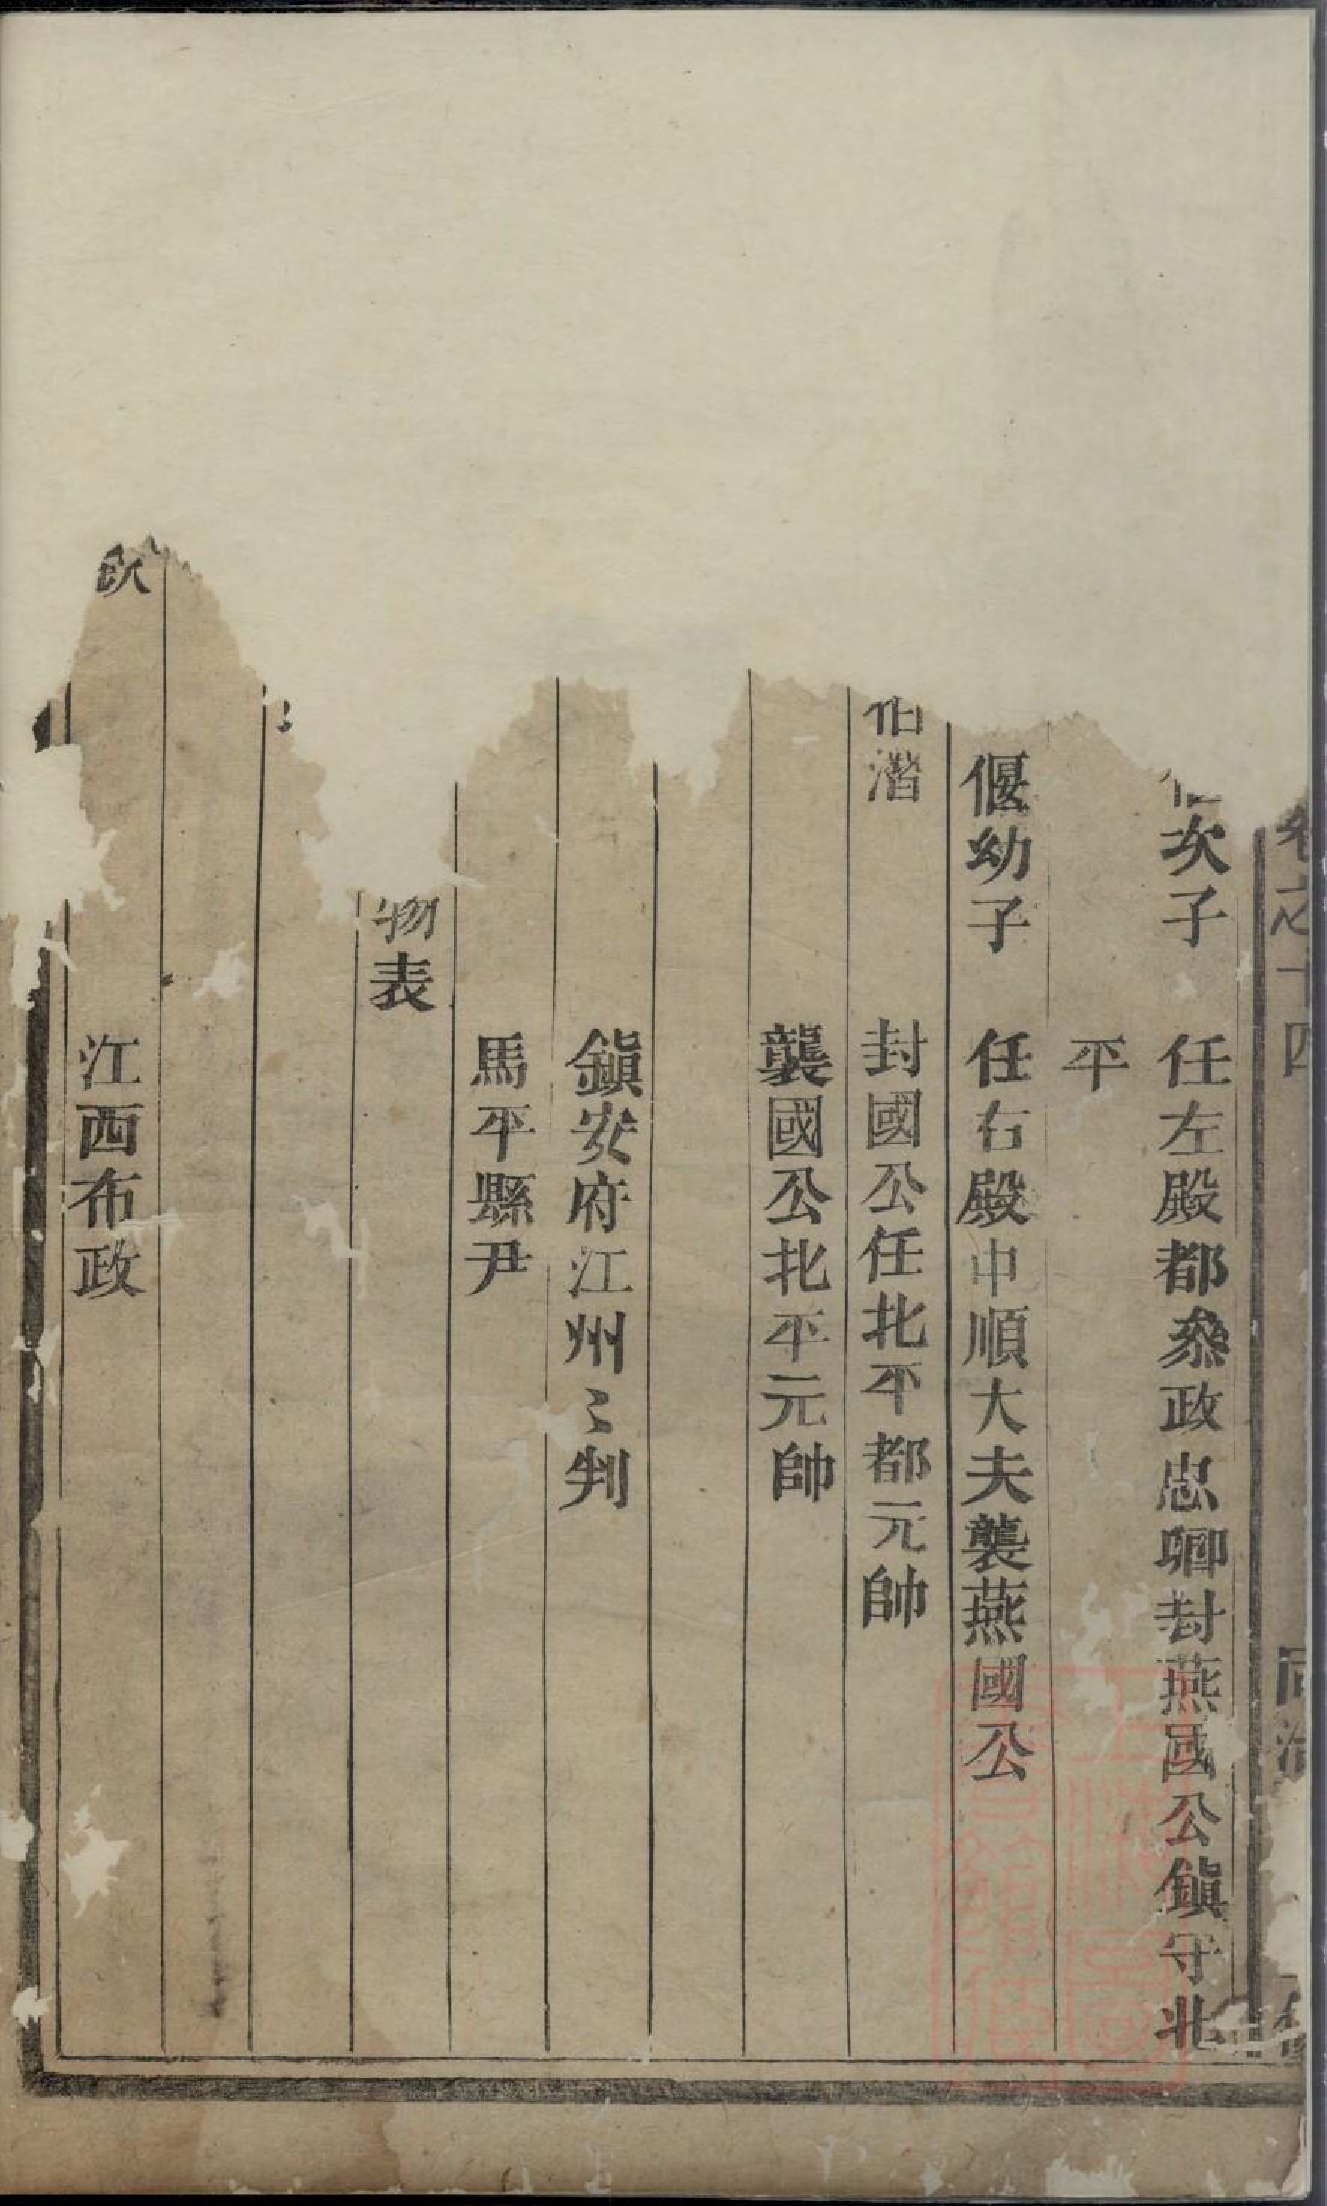 卷之十四 同治
次子 任左殿都叅政忠卿封燕國公鎮守北
平
偃幼子 任右殿中順大夫襲燕國公
伯潛 封國公任北平都元帥
襲國公北平元帥
鎮安府江州〻判
馬平縣尹
物表
欽 江西布政